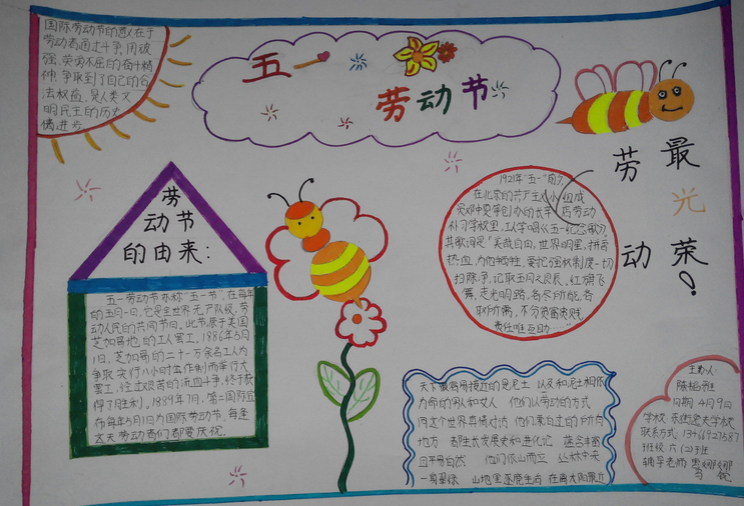 国际劳动节的意义在于
劳动者通过斗争,用顽
强、英勇不屈的奋斗精
神,争取到了自己的合
法权益,是人类文
明民主的历史
进步
五一
劳动节
劳动最光荣!
劳
动节
的由来:
五一劳动节亦称“五一节”,在每年
的五月一日。它是全世界无产阶级、劳
动人民的共同节日。此节源于美国
芝加哥地的工人罢工。1886年5月
1日,芝加哥的二十一万余名工人为
争取实行八小时工作制而举行大
罢工,经过艰苦的流血斗争,终于获
得了胜利。1889年7月,第二国际宣
布每年5月1日为国际劳动节,每逢
这天劳动者们都要庆祝。
1921年“五一”前夕,
在北京的共产主义小组成
员邓中夏等创办的长辛店劳动
补习学校里,工人学唱《五一纪念歌》。
其歌词是“美哉自由,世界明星,拼吾
热血,为他牺牲,要把强权制度一切
扫除净,记取五月之良辰。红旗飞
舞,走光明路,各尽所能,各
取所需,不分贫富贵贱,
责任唯互助
天下最容易接近的是泥土 以及和泥土相依
为命的男人和女人 他们以劳动的方式
同这个世界真情对流 他们来自过的
地方 都胜长发展史和进化记 蕴含丰富
且平易自然 他们依山而立 丛林中央
一项翠绿 山地里蓬度生香
主办人:
陈
日期:4月9日
学校:东街逸夫学校
联系方式:13466923587
班级:六(2)班
辅导老师: